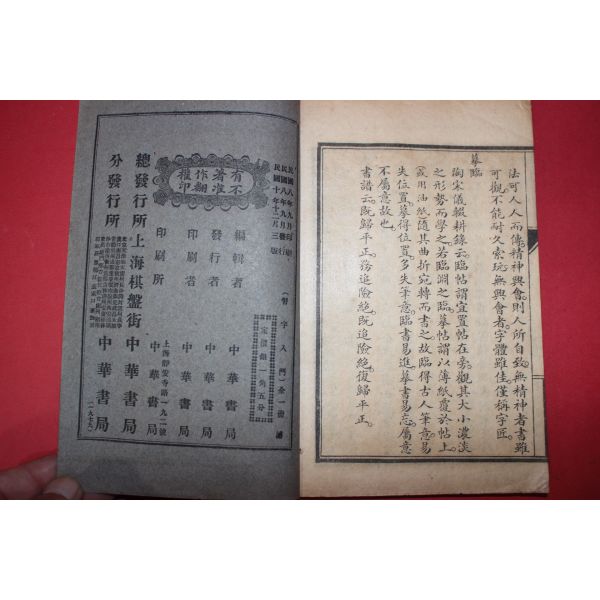 法可人人而傳精神興會則人所自致無精神者書雖
可觀不能耐久索玩無興會者字體雖佳僅稱字匠
摹臨
陶宋儀輟耕錄云臨帖謂宜置帖在旁觀其大小濃淡
之形勢而學之若臨淵之臨摹帖謂以薄紙覆於帖上
或用油紙隨其曲折宛轉而書之故臨得古人筆意易
失位置摹得位置多失筆意臨書易進摹書易忘屬意
不屬意故也
書譜云既歸平正務追險絕既追險絕復歸平正
民國八年九月印刷
民國八年九月發行
民國十年十二月三版
有著作權
不准翻印
定價銀一角五分
編輯者 中華書局
發行者 中華書局
印刷者 中華書局
印刷所 上海靜安寺路一九二號 中華書局
總發行所 上海棋盤街 中華書局
分發行所 中華書局